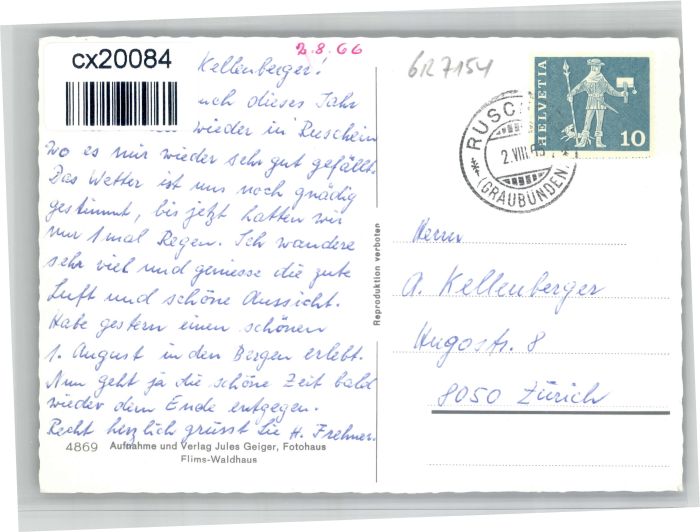 cx20084
2.8.66
GR 7154
Kellenberger!
uch dieses Jahr
wieder in Ruschein
wo es mir wieder sehr gut gefällt.
Das Wetter ist uns noch gnädig
gestimmt, bis jetzt hatten wir
nur 1 mal Regen. Ich wandere
sehr viel und geniesse die gute
Luft und schöne Aussicht.
Habe gestern einen schönen
1. August in den Bergen erlebt.
Nun geht ja die schöne Zeit bald
wieder dem Ende entgegen.
Recht herzlich grüsst Sie H. Frehner.
4869 Aufnahme und Verlag Jules Geiger, Fotohaus
Flims-Waldhaus
Reproduktion verboten
HELVETIA
10
2.VIII.
(GRAUBÜNDEN)
Herrn
A. Kellenberger
Hugostr. 8
8050 Zürich